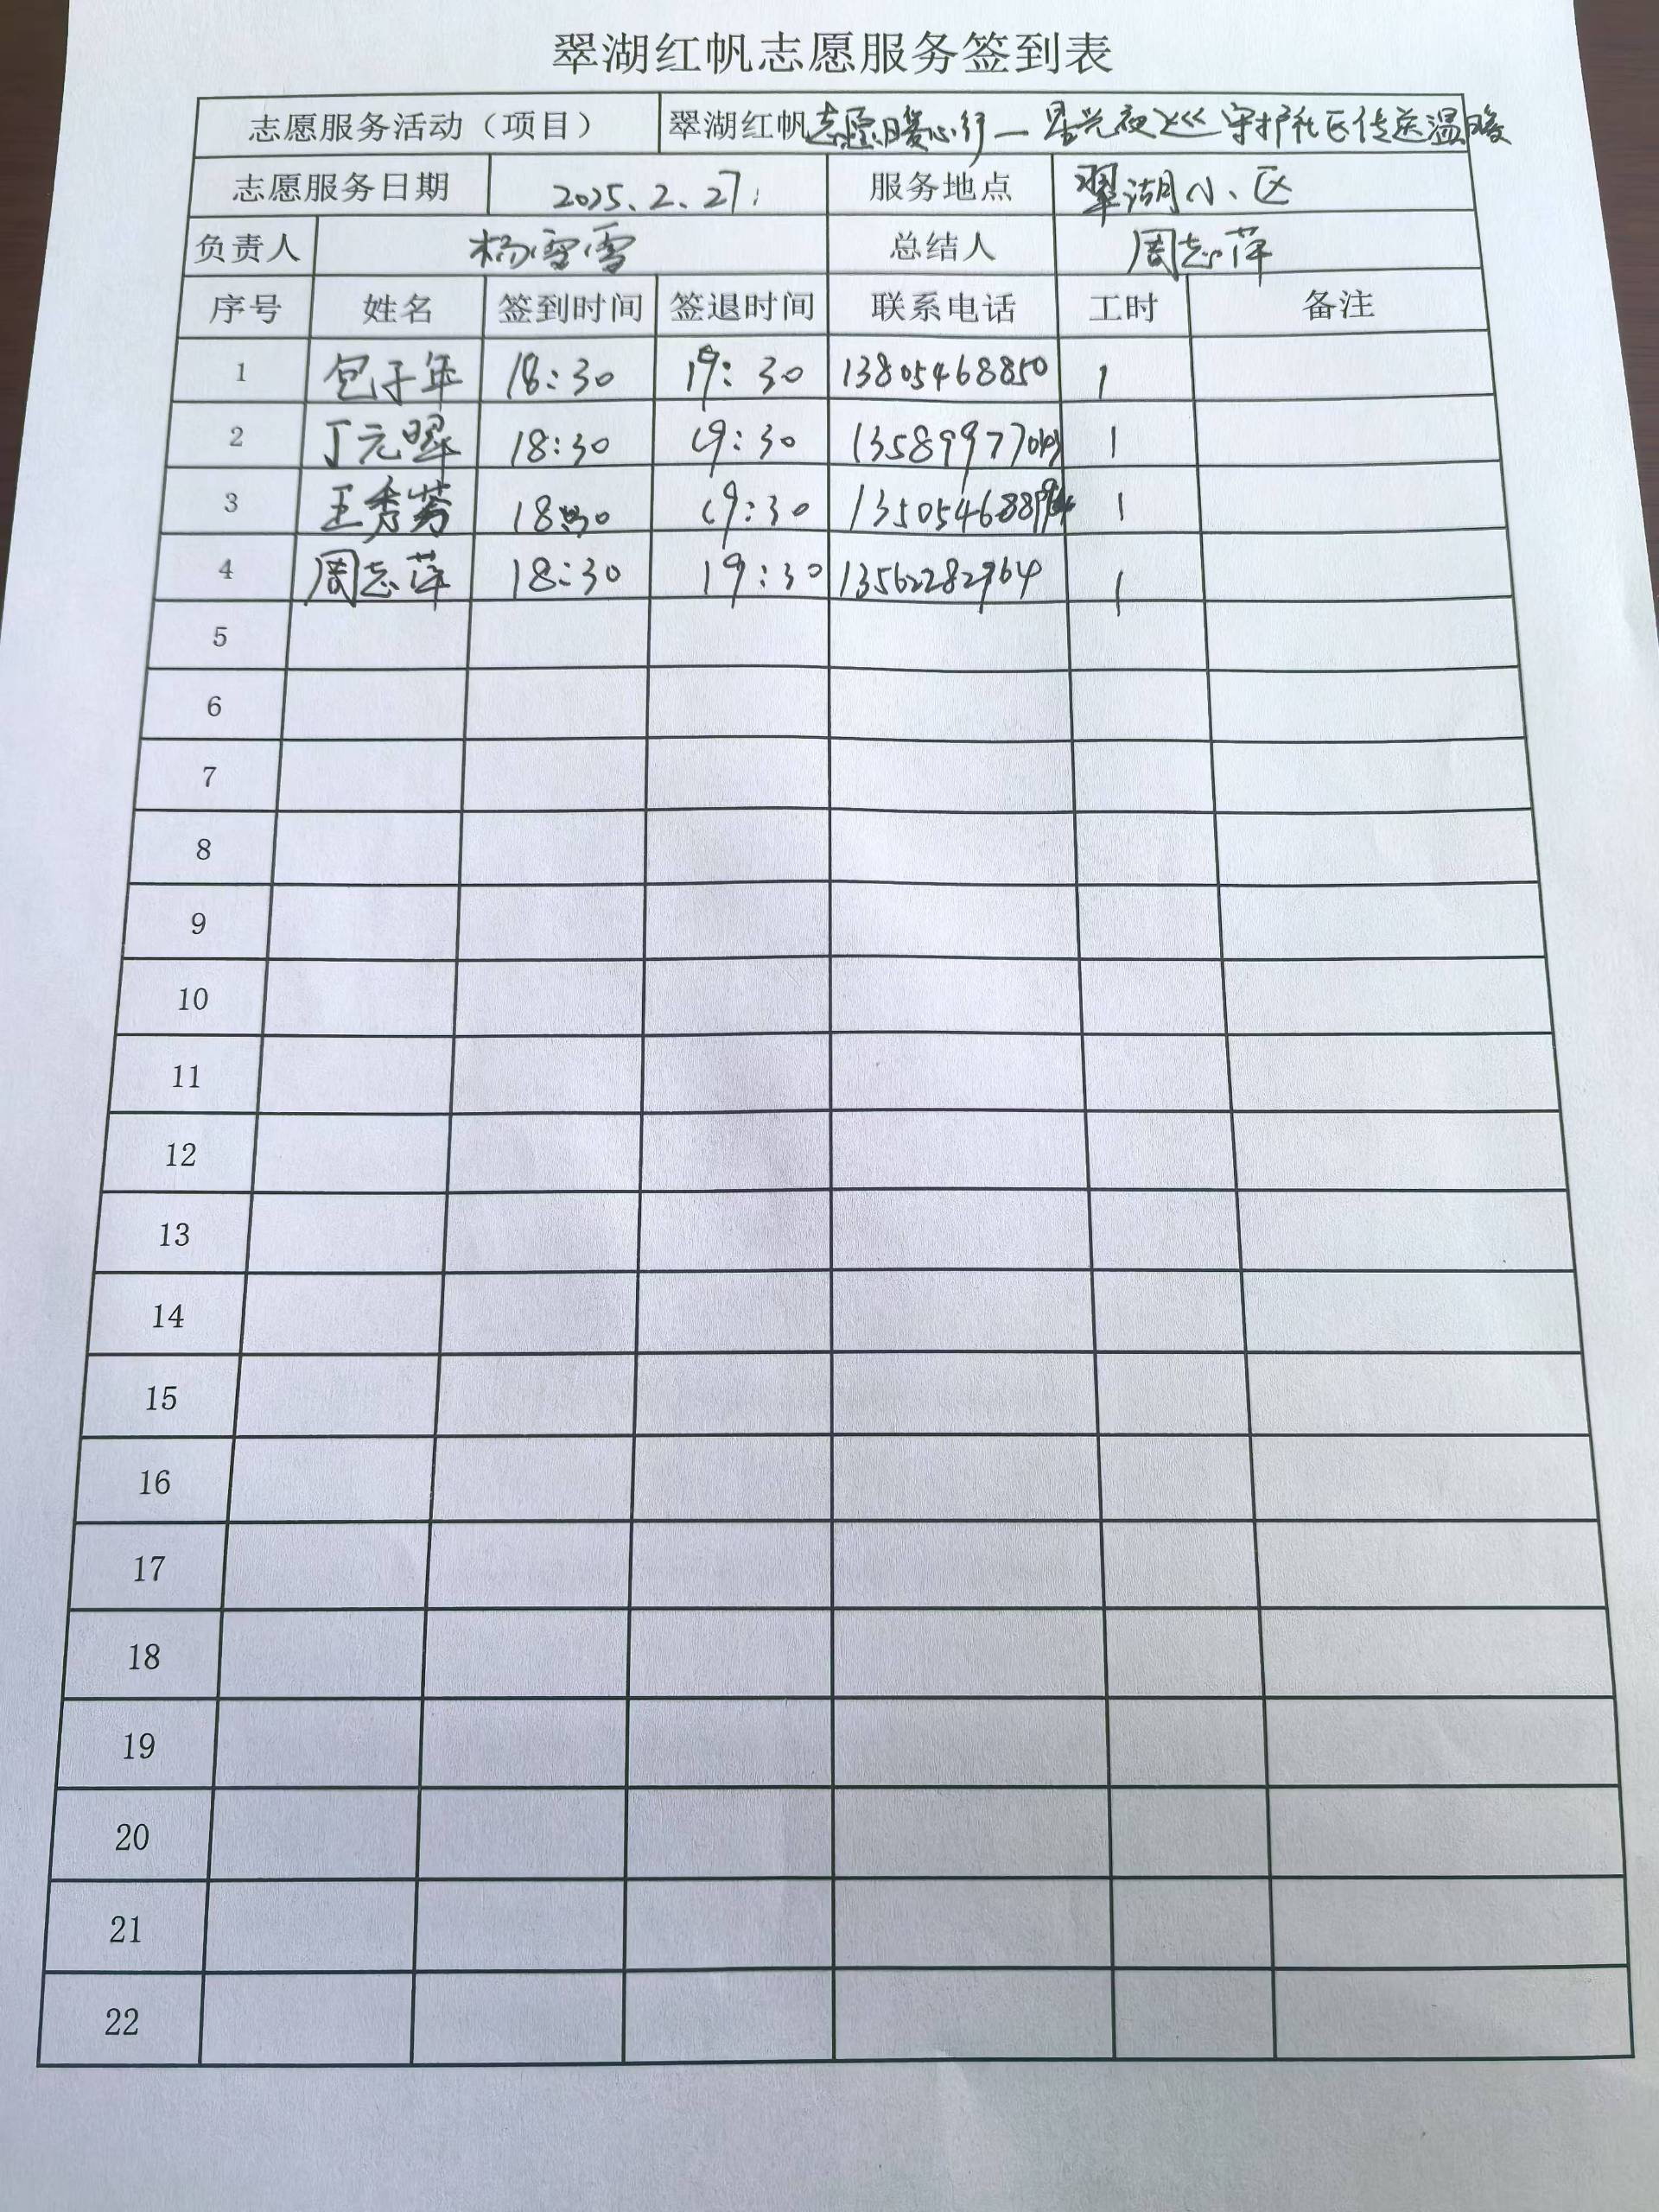 翠湖红帆志愿服务签到表
志愿服务活动（项目） 翠湖红帆志愿暖心行—星光夜巡守护社区传送温暖
志愿服务日期 2025.2.27. 服务地点 翠湖小区
负责人 杨雪雪 总结人 周志萍
序号 姓名 签到时间 签退时间 联系电话 工时 备注
1 包子年 18:30 19:30 13805468850 1
2 丁元翠 18:30 19:30 1
3 王秀芬 18:30 19:30 1
4 周志萍 18:30 19:30 13562282964 1
5
6
7
8
9
10
11
12
13
14
15
16
17
18
19
20
21
22